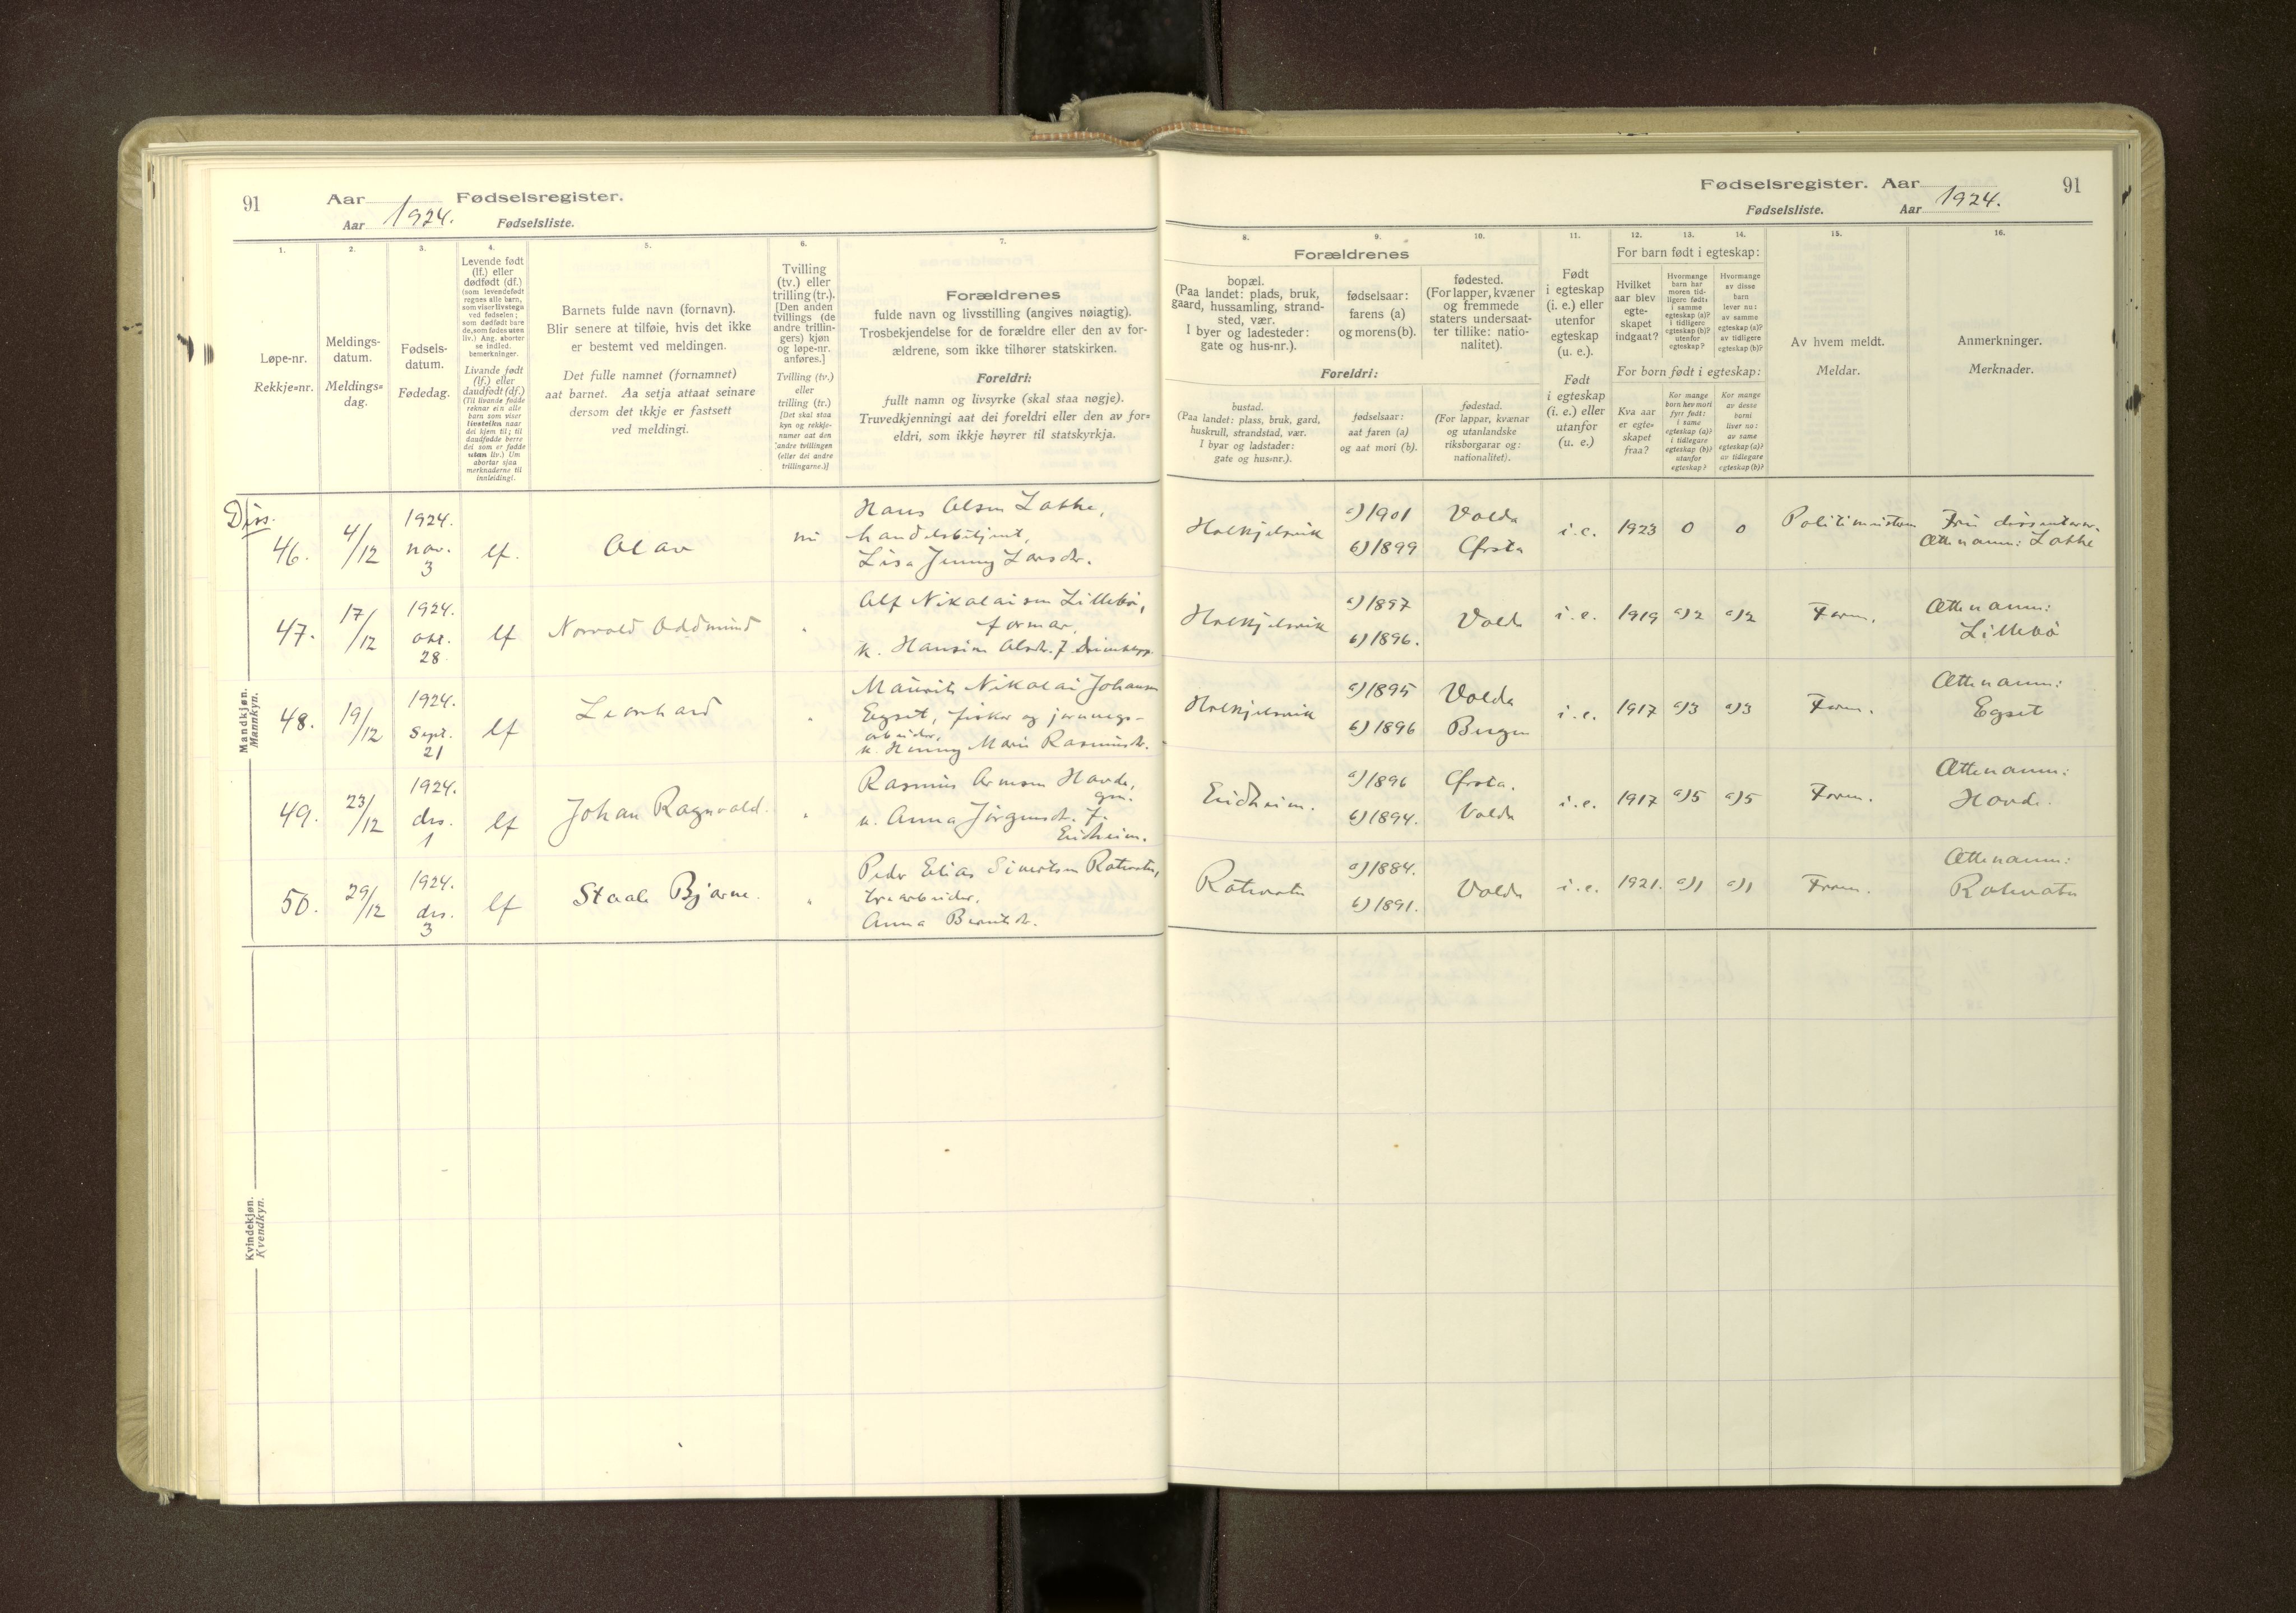 91
Aar
Fødselsregister.
Aar 1924.
Fødselsliste.
1.
2.
3.
4.
5.
6.
7.
Løpe-nr.
Rekkje=nr.
Meldings-
datum.
Meldings=
dag.
Fødsels-
datum.
Fødedag.
Levende født
(lf.) eller
dødfødt (df.)
(som levendefødt
regnes alle barn,
som viser livstegn
ved fødselen;
som dødfødt bare
de, som fødes uten
liv.) Ang. aborter
se indled.
bemerkninger.
Livande født
(lf.) eller
daudfødt (df.)
(Til livande fødde
reknar ein alle
barn som viser
livsteikn naar
dei kjem til; til
daudfødde berre
dei som er fødde
utan liv.) Um
abortar sjaa
merknaderne til
innleidingi.
Barnets fulde navn (fornavn).
Blir senere at tilføie, hvis det ikke
er bestemt ved meldingen.
Det fulle namnet (fornamnet)
aat barnet. Aa setja attaat seinare
dersom det ikkje er fastsett
ved meldingi.
Tvilling
(tv.) eller
trilling (tr.).
[Den anden
tvillings (de
andre trillin-
gers) kjøn
og løpe-nr.
anføres.]
Tvilling (tv.)
eller
trilling (tr.)
[Det skal staa
kyn og rekkje-
numer aat den
andre tvillingen
(eller dei andre
trillingarne.)]
Forældrenes
fulde navn og livsstilling (angives nøiagtig).
Trosbekjendelse for de forældre eller den av for-
ældrene, som ikke tilhører statskirken.
Foreldri:
fullt namn og livsyrke (skal staa nøgje).
Truvedkjenningi aat dei foreldri eller den av for=
eldri, som ikkje høyrer til statskyrkja.
Mandkjøn.
Mannkyn.
Diss.
46.
4/12
1924.
nov.
3
lf.
Olav
Hans Olsen
Lisa Jenny Larsdr.
47.
17/12
1924.
okt.
28
lf
Norvald Oddmund
"
Alf Nikolaisen Lillebø,
formar,
k. Hansine Olsdr. f.
48.
19/12
1924.
Sept.
21
lf
Leonhard
"
Maurits Nikolai Johansen
Egset, fisker og jarnvegs-
arbeider,
k. Henny Marie Rasmusdr.
49.
23/12
1924.
des.
1
lf
Johan Ragnvald.
"
Rasmus Arnesen Hovde,
gm.
k. Anna Jørgensdr. f.
Eidheim.
50.
29/12
1924.
des.
3
lf
Staale Bjarne.
"
Peder Elias Sivertsen Rotevatn,
trearbeider.
Anna Berntsdr.
Kvindekjøn.
Kvendkyn.
Fødselsregister. Aar
91
Fødselsliste.
Aar 1924.
8.
9.
10.
11.
12.
13.
14.
15.
16.
Forældrenes
bopæl.
(Paa landet: plads, bruk,
gaard, hussamling, strand-
sted, vær.
I byer og ladesteder:
gate og hus-nr.).
fødselsaar:
farens (a)
og morens (b).
fødested.
(For lapper, kvæner
og fremmede
staters undersaat-
ter tillike: natio-
nalitet).
Foreldri:
bustad.
(Paa landet: plass, bruk, gard,
huskrull, strandstad, vær.
I byar og ladstader:
gate og hus=nr.).
fødselsaar:
aat faren (a)
og aat mori (b).
fødestad.
(For lappar, kvænar
og utanlandske
riksborgarar og:
nationalitet).
Født
i egteskap
(i. e.) eller
utenfor
egteskap
(u. e.).
Født
i egteskap
(i. e.) eller
utanfor
(u. e.)
For barn født i egteskap:
Hvilket
aar blev
egte-
skapet
indgaat?
Hvormange
barn har
moren tid-
ligere født:
i samme
egteskap (a)?
i tidligere
egteskap (b)?
utenfor
egteskap?
Hvormange
av disse
barn
lever nu:
av samme
egteskap (a)?
av tidligere
egteskap (b)?
For born født i egteskap:
Kva aar
er egte=
skapet
fraa?
Kor mange
born hev mori
fyrr født:
i same
egteskap (a)?
i tidlegare
egteskap (b)?
utanfor
egteskap?
Kor mange
av desse
borni
liver no:
av same
egteskap (a)?
av tidlegare
egteskap (b)?
Av hvem meldt.
Meldar.
Anmerkninger.
Merknader.
a) 1901
b) 1899
Volda
Ørsta
i. e.
1923
0
0
Ættenamn:
a) 1897
b) 1896.
Volda
i. e.
1919
a) 2
a) 2
Ættenamn:
Lillebø
a) 1895
b) 1896
Volda
Bergen
i. e.
1917
a) 3
a) 3
Ættenamn:
Egset
Eidheim.
a) 1896
b) 1894.
Ørsta.
Volda
i. e.
1917
a) 5
a) 5
Ættenamn:
Hovde.
Rotevatn
a) 1884.
b) 1891.
Volda
i. e.
1921.
a) 1
a) 1
Ættenamn:
Rotevatn